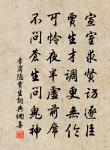 宣室求賢訪逐臣
賈生才調更無倫
可憐夜半虛前席
不問蒼生問鬼神
李商隱賈生詞典網書